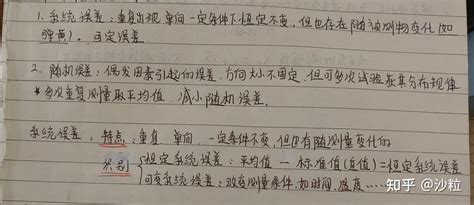 1. 系统误差：重复出现 单向 一定条件下恒定不变，但也存在随被测物变化(如
弹簧)。 固定误差
2. 随机误差：偶发因素引起的误差，方向大小不固定，但可多次试验求其分布规律
*多次重复测量取平均值，减小随机误差。
系统误差：特点：重复 单向，一定条件不变，但也有随测量变化的
识别 恒定系统误差：平均值 — 标准值(真值)=恒定系统误差
可变系统误差：改变测量条件，如时间，温度……
知乎 @沙粒